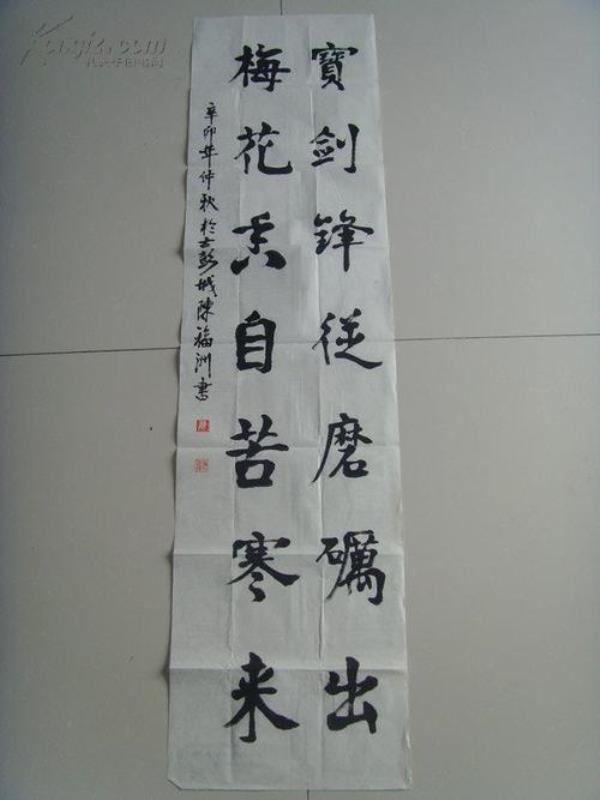 寶劍鋒従磨礪出
梅花香自苦寒来
辛卯年仲秋於古彭城陳福洲書
Kongfz.com
孔夫子旧书网